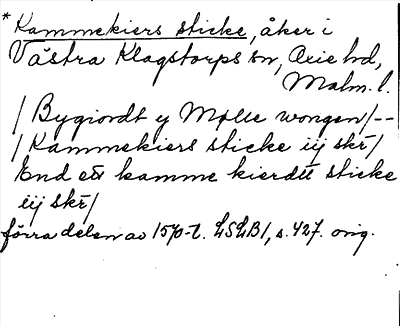 *Kammekiers sticke, åker i
Västra Klagstorps sn, Oxie hd,
Malm. l.
/ Bygiordt y Mølle wongen/--
/ Kammekiers sticke iij skr/
End ett kamme kierdtt sticke
iij skr/
förra delen av 1570-t. LSLB1, s. 427. orig.